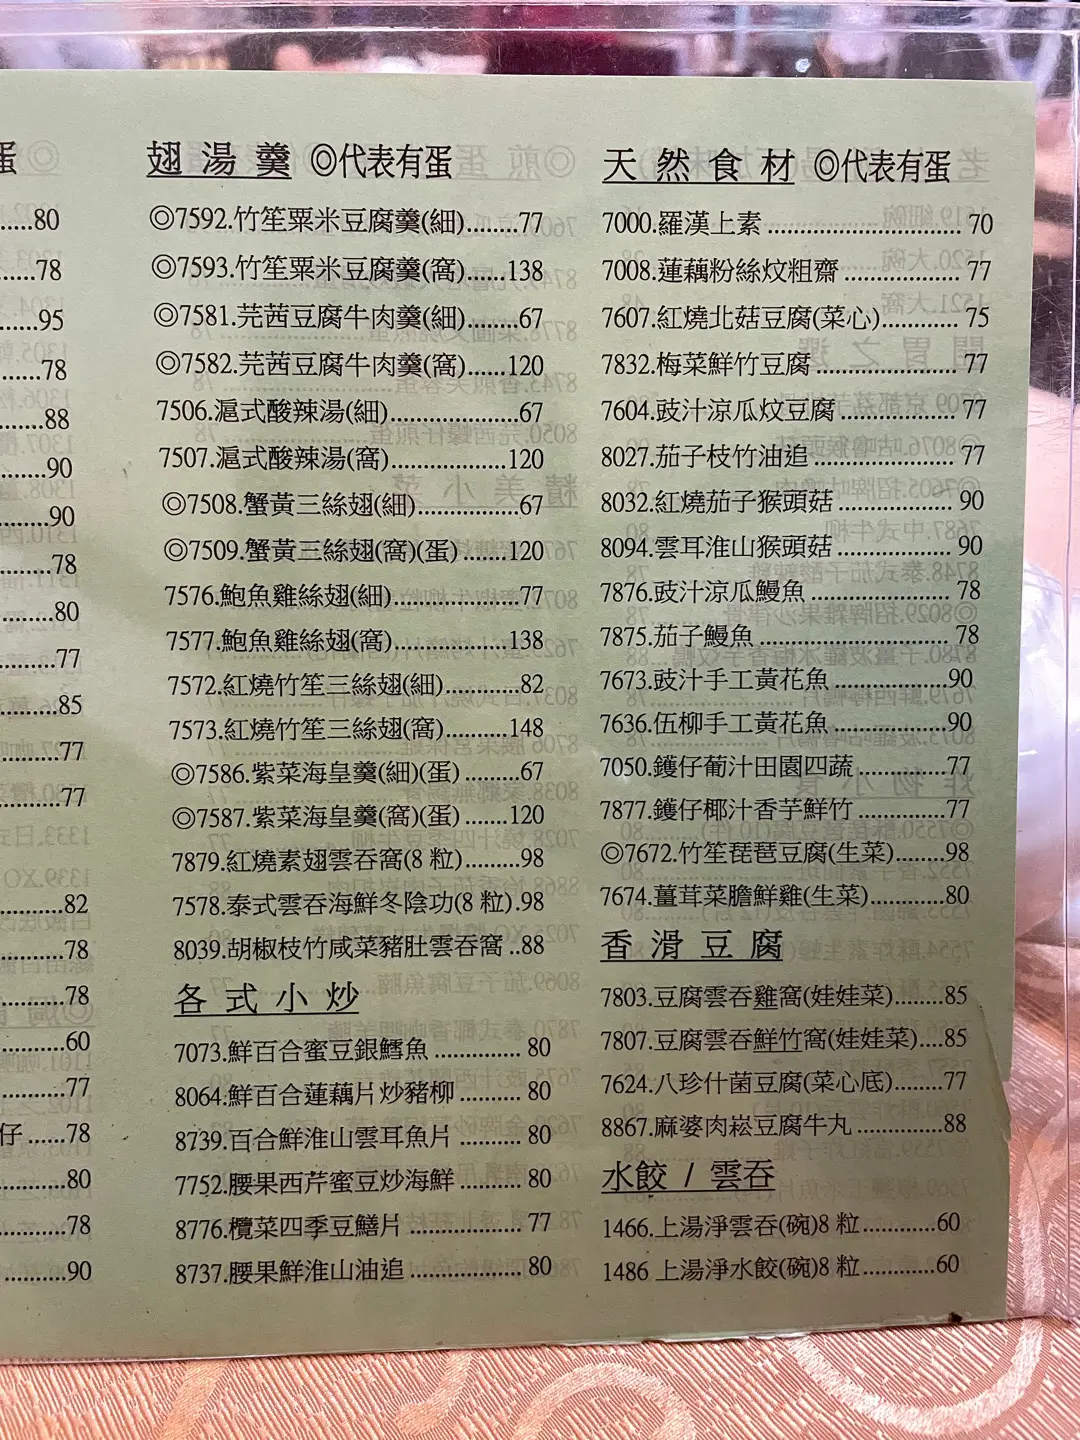 蛋
.....80
...78
......95
......78
88
90
90
78
80
77
85
77
77
82
78
78
60
77
仔......78
80
78
90
翅湯羹 ◎代表有蛋
◎7592.竹笙粟米豆腐羹(細).......77
◎7593.竹笙粟米豆腐羹(窩).....138
◎7581.芫茜豆腐牛肉羹(細).......67
◎7582.芫茜豆腐牛肉羹(窩).....120
7506.滬式酸辣湯(細)..................67
7507.滬式酸辣湯(窩)................120
◎7508.蟹黃三絲翅(細)..............67
◎7509.蟹黃三絲翅(窩)(蛋)......120
7576.鮑魚雞絲翅(細)..................77
7577.鮑魚雞絲翅(窩)................138
7572.紅燒竹笙三絲翅(細)..........82
7573.紅燒竹笙三絲翅(窩)........148
◎7586.紫菜海皇羹(細)(蛋) .......67
◎7587.紫菜海皇羹(窩)(蛋) .....120
7879.紅燒素翅雲吞窩(8 粒)........98
7578.泰式雲吞海鮮冬陰功(8 粒).98
8039.胡椒枝竹咸菜豬肚雲吞窩 ..88
各式小炒
7073.鮮百合蜜豆銀鱈魚 ............ 80
8064.鮮百合蓮藕片炒豬柳 ......... 80
8739.百合鮮淮山雲耳魚片 ......... 80
7752.腰果西芹蜜豆炒海鮮 ......... 80
8776.欖菜四季豆鱔片 ................ 77
8737.腰果鮮淮山油追 ................ 80
天然食材 ◎代表有蛋
7000.羅漢上素 ........................... 70
7008.蓮藕粉絲炆粗齋 ................ 77
7607.紅燒北菇豆腐(菜心)........... 75
7832.梅菜鮮竹豆腐 .................... 77
7604.豉汁涼瓜炆豆腐 ................ 77
8027.茄子枝竹油追 .................... 77
8032.紅燒茄子猴頭菇 ................ 90
8094.雲耳淮山猴頭菇 ................ 90
7876.豉汁涼瓜鰻魚 .................... 78
7875.茄子鰻魚 ........................... 78
7673.豉汁手工黃花魚 ................90
7636.伍柳手工黃花魚 ................90
7050.鑊仔葡汁田園四蔬 ............77
7877.鑊仔椰汁香芋鮮竹 ............77
◎7672.竹笙琵琶豆腐(生菜).......98
7674.薑茸菜膽鮮雞(生菜)..........80
香滑豆腐
7803.豆腐雲吞雞窩(娃娃菜).......85
7807.豆腐雲吞鮮竹窩(娃娃菜)....85
7624.八珍什菌豆腐(菜心底).......77
8867.麻婆肉崧豆腐牛丸 ............88
水餃 / 雲吞
1466.上湯淨雲吞(碗)8 粒 ...........60
1486 上湯淨水餃(碗)8 粒............60